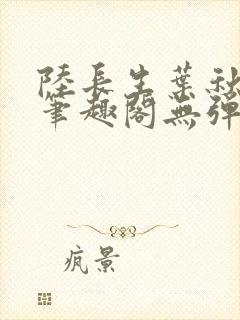 陸長生葉秋
筆趣閣無彈
疯景